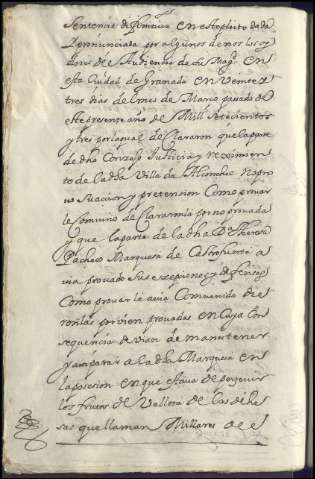 sentencia difinitiva en este pleito dada
Pronnunciada por algunos de nos los oy
dores de Audiencia de su Magd. en
esta Ciudad de Granada en Veinte y
tres dias del mes de Marzo pasado de
este presente año de Mill setecientos
y tres por la qual declararon que la parte
de dho Conzejo Justicia y reximien
to de la dha Villa de no pro
uo su accion y pretension Como prouar
le conuino declararonla por no prouada
y que la parte de la dha Da. Theresa
Pacheco Marquesa de Castrofuerte a
uia prouado sus exepciones y defensas
Como prouar le auia Comuenido die
ronlas por vien prouadas en Cuya Con
sequencia deuian de mantener
y amparar a la dha Marquesa en
la posecion en que estaua de perceuir
los frutos de Vellota de las dehe
sas que llaman Millares de el